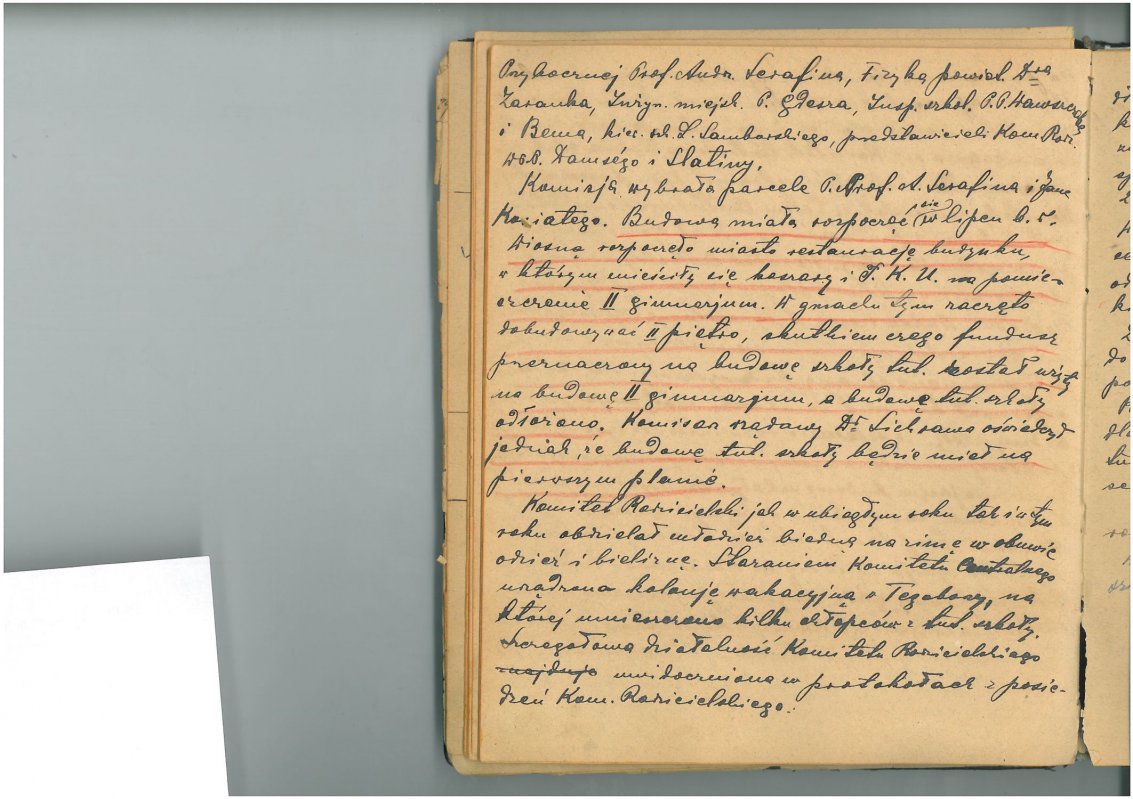 Przybocznej Prof. Andr. Serafina, Fizyka powiat. Dra
Zaranka, Inżyn. miejsk. P. Gdesza, Insp. szkol. P.P.
i Bema, kier. szk. L. Samborskiego, przedstawicieli Kom. Rodz.
wob. Damségo i Slatiny.
Komisja wybrała parcele P. Prof. A. Serafina i Jana
Koziatego. Budowa miała rozpocząć się w lipcu b. r.
Wiosną rozpoczęło miasto restaurację budynku,
w którym mieściły się koszary i P. K. U. na pomie-
szczenie II gimnazjum. W gmachu tym zaczęto
dobudowywać II piętro, skutkiem czego fundusz
przeznaczony na budowę szkoły tut. został użyty
na budowę II gimnazjum, a budowę tut. szkoły
odłożono. Komisarz rządowy Dr Sichrawa oświadczył
jednak, że budowę tut. szkoły będzie miał na
pierwszym planie.
Komitet Rodzicielski jak w ubiegłym roku tak i w tym
roku obdzielał młodzież biedną na zimę w obuwie
odzież i bieliznę. Staraniem Komitetu Centralnego
urządzono kolonję wakacyjną w Tęgoborzy, na
której umieszczono kilku chłopców z tut. szkoły.
Szczegółowa działalność Komitetu Rodzicielskiego
znajduje uwidoczniona w protokołach z posie-
dzeń Kom. Rodzicielskiego.